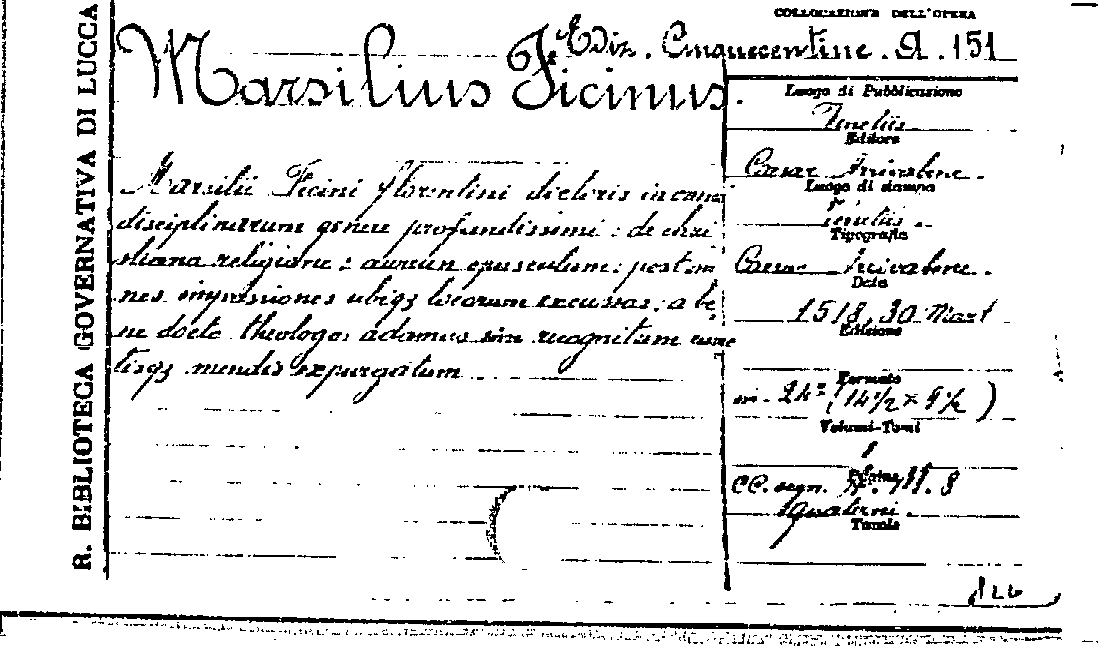 R. BIBLIOTECA GOVERNATIVA DI LUCCA
COLLOCAZIONE DELL'OPERA
Ediz. Cinquecentine. A. 151
Marsilius Ficinus.
Marsilii Ficini florentini doctoris in omni
disciplinarum genere profundissimi: de chri
stiana religione: aureum opusculum: post om
nes impressiones ubiqz locorum excussas: a be
ne docto theologo: adamus sim recognitum cunc
tisqz mendis expurgatum
Luogo di Pubblicazione
Venetiis
Editore
Caesar Arrivabene.
Luogo di stampa
Venetiis.
Tipografia
Caesar Arrivabene.
Data
1518, 30 Mart
Edizione
Formato
in-24° (14½ x 9½)
Volumi-Tomi
1
Pagine
CC. segn.
quaterni.
Tavole